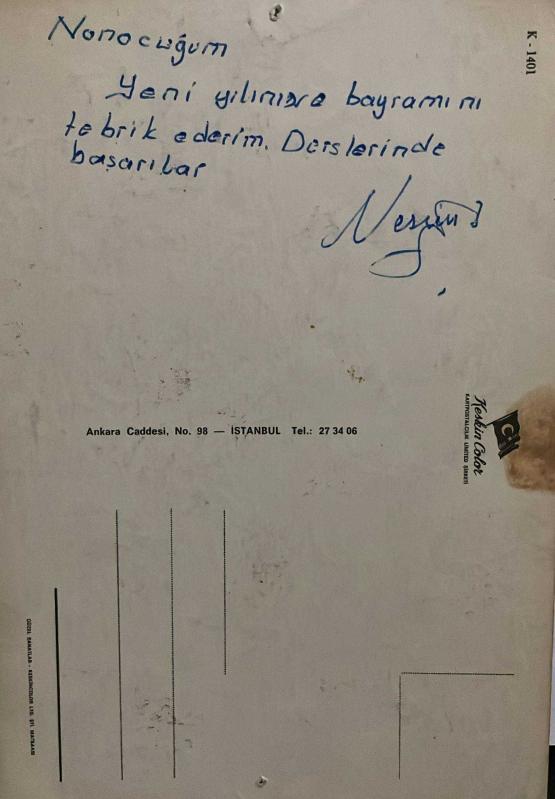 Nonocuğum
Yeni yılınızve bayramını
tebrik ederim. Derslerinde
başarılar
K - 1401
Ankara Caddesi, No. 98 — İSTANBUL Tel.: 27 34 06
Keskin Color
KARTPOSTALCILIK LİMİTED ŞİRKETİ
GÜZEL SANATLAR - KESKİNCOLOR LTD. ŞTİ. MATBAASI